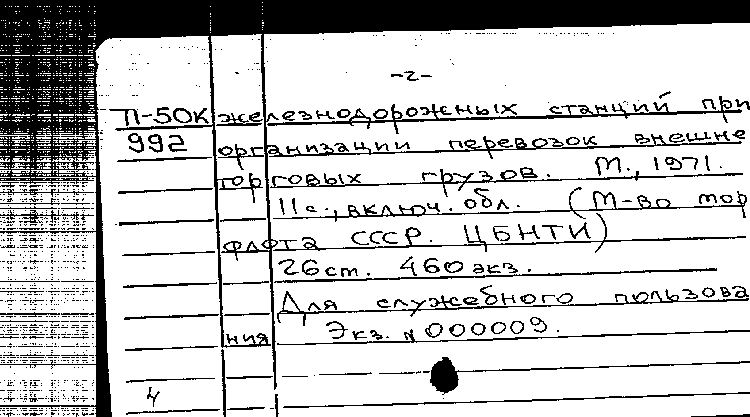 -2-
П-50К железнодорожных станций при
992 организации перевозок внешне
торговых грузов. М., 1971.
11с., включ. обл. (М-во мор
флота СССР. ЦБНТИ)
26 см. 460 экз.
Для служебного пользова
ния Экз. № 000009.
4